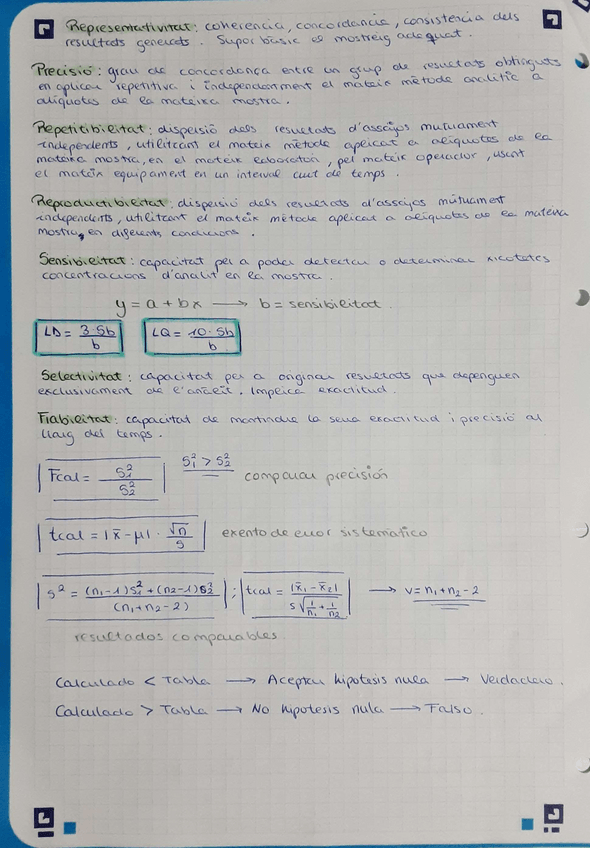 Representativitat: coherència, concordancia, consistència dels
resultats generats. Supor bàsic el mostreig adequat.
Precisió: grau de concordança entre un grup de resultats obtinguts
en aplicar repetitiva i independentment el mateix mètode analític a
alíquotes de la mateixa mostra.
Repetitibilitat: dispersió dels resultats d'assajos mutuament
independents, utilitzant el mateix mètode aplicat a alíquotes de la
mateixa mostra, en el mateix laboratori, pel mateix operador, usant
el mateix equipament en un interval curt de temps.
Reproductibilitat: dispersió dels resultats d'assajos mútuament
independents, utilitzant el mateix mètode aplicat a alíquotes de la mateixa
mostra, en diferents condicions.
Sensibilitat: capacitat per a poder detectar o determinar xicotetes
concentracions d'analit en la mostra.
y = a + bx → b = sensibilitat
LD = 3·Sb / b LQ = 10·Sb / b
Selectivitat: capacitat per a originar resultats que depenguen
exclusivament de l'analit. Implica exactitud.
Fiabilitat: capacitat de mantindre la seua exactitud i precisió al
llarg del temps.
Fcal = S₁² / S₂² S₁² > S₂² comparar precisión
tcal = |x̄ - μ| · √n / s exento de error sistemático
s² = (n₁-1)s₁² + (n₂-1)s₂² / (n₁+n₂-2) ; tcal = |x̄₁ - x̄₂| / s √(1/n₁ + 1/n₂) → v = n₁+n₂-2
resultados comparables
Calculado < Tabla → Aceptar hipotesis nula → Verdadero.
Calculado > Tabla → No hipotesis nula → Falso.